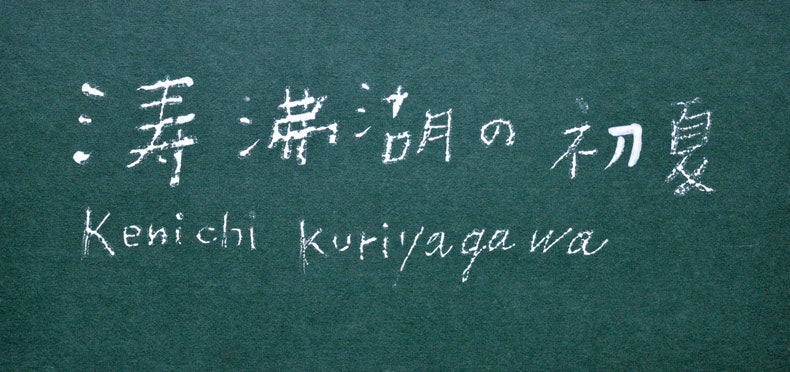 涛沸湖の初夏
Kenichi Kuriyagawa